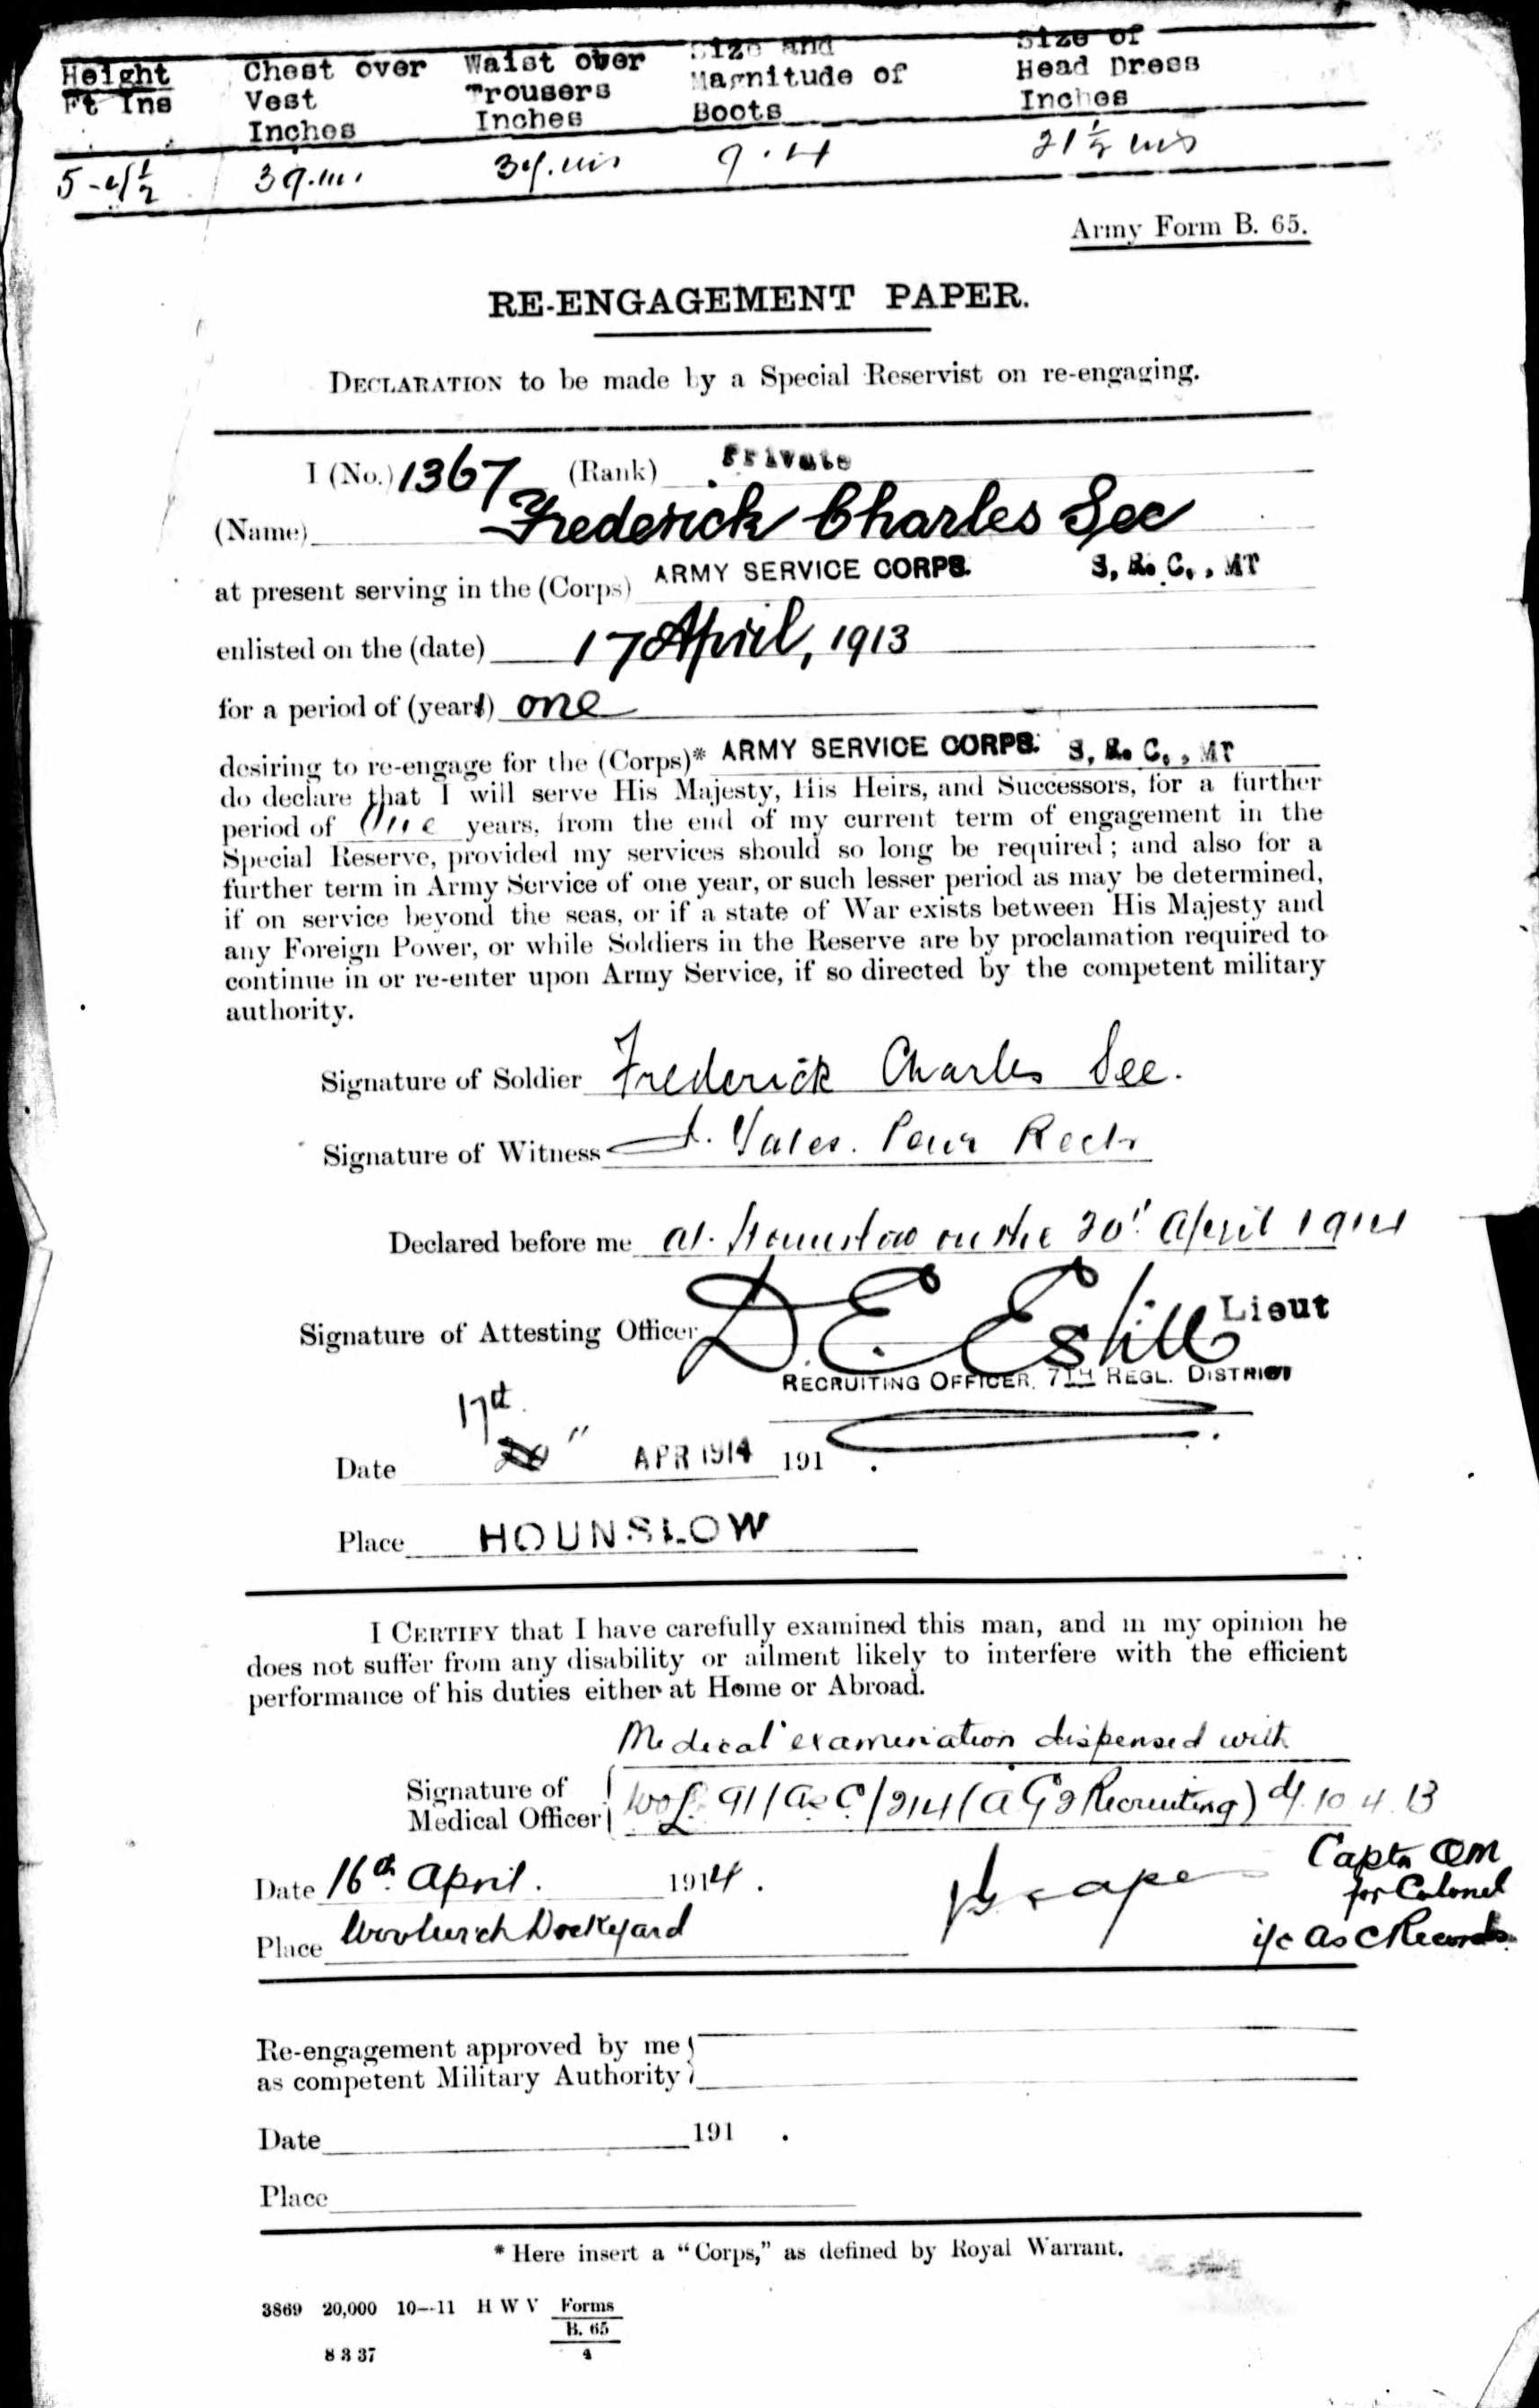 Height Chest over Waist over Size and Size of
Ft Ins Vest Trousers Magnitude of Head Dress
Inches Inches Boots Inches
5-4½ 39.ins 34.ins 9.4 21½ ins
Army Form B. 65.
RE-ENGAGEMENT PAPER.
DECLARATION to be made by a Special Reservist on re-engaging.
I (No.) 1367 (Rank) Private
(Name) Frederick Charles See
at present serving in the (Corps) ARMY SERVICE CORPS. S. R. C., MT
enlisted on the (date) 17 April, 1913
for a period of (years) one
desiring to re-engage for the (Corps)* ARMY SERVICE CORPS. S. R. C., MT
do declare that I will serve His Majesty, His Heirs, and Successors, for a further
period of One years, from the end of my current term of engagement in the
Special Reserve, provided my services should so long be required; and also for a
further term in Army Service of one year, or such lesser period as may be determined,
if on service beyond the seas, or if a state of War exists between His Majesty and
any Foreign Power, or while Soldiers in the Reserve are by proclamation required to
continue in or re-enter upon Army Service, if so directed by the competent military
authority.
Signature of Soldier Frederick Charles See.
Signature of Witness Yates.
Declared before me at Hounslow on the 20" April 1914
Signature of Attesting Officer D. E. Estill Lieut
RECRUITING OFFICER, 7TH REGL. DISTRICT
17th
Date 20" APR 1914 191 .
Place HOUNSLOW
I CERTIFY that I have carefully examined this man, and in my opinion he
does not suffer from any disability or ailment likely to interfere with the efficient
performance of his duties either at Home or Abroad.
Medical examination dispensed with
Signature of
Medical Officer 91/ASC/214 (AG2 Recruiting) d/ 10 4 13
Date 16th April. 1914. Capt QM
for Colonel
Place Woolwich Dockyard i/c ASC Records.
Re-engagement approved by me
as competent Military Authority
Date 191 .
Place
* Here insert a "Corps," as defined by Royal Warrant.
3869 20,000 10—11 H W V Forms
B. 65
8 3 37 4